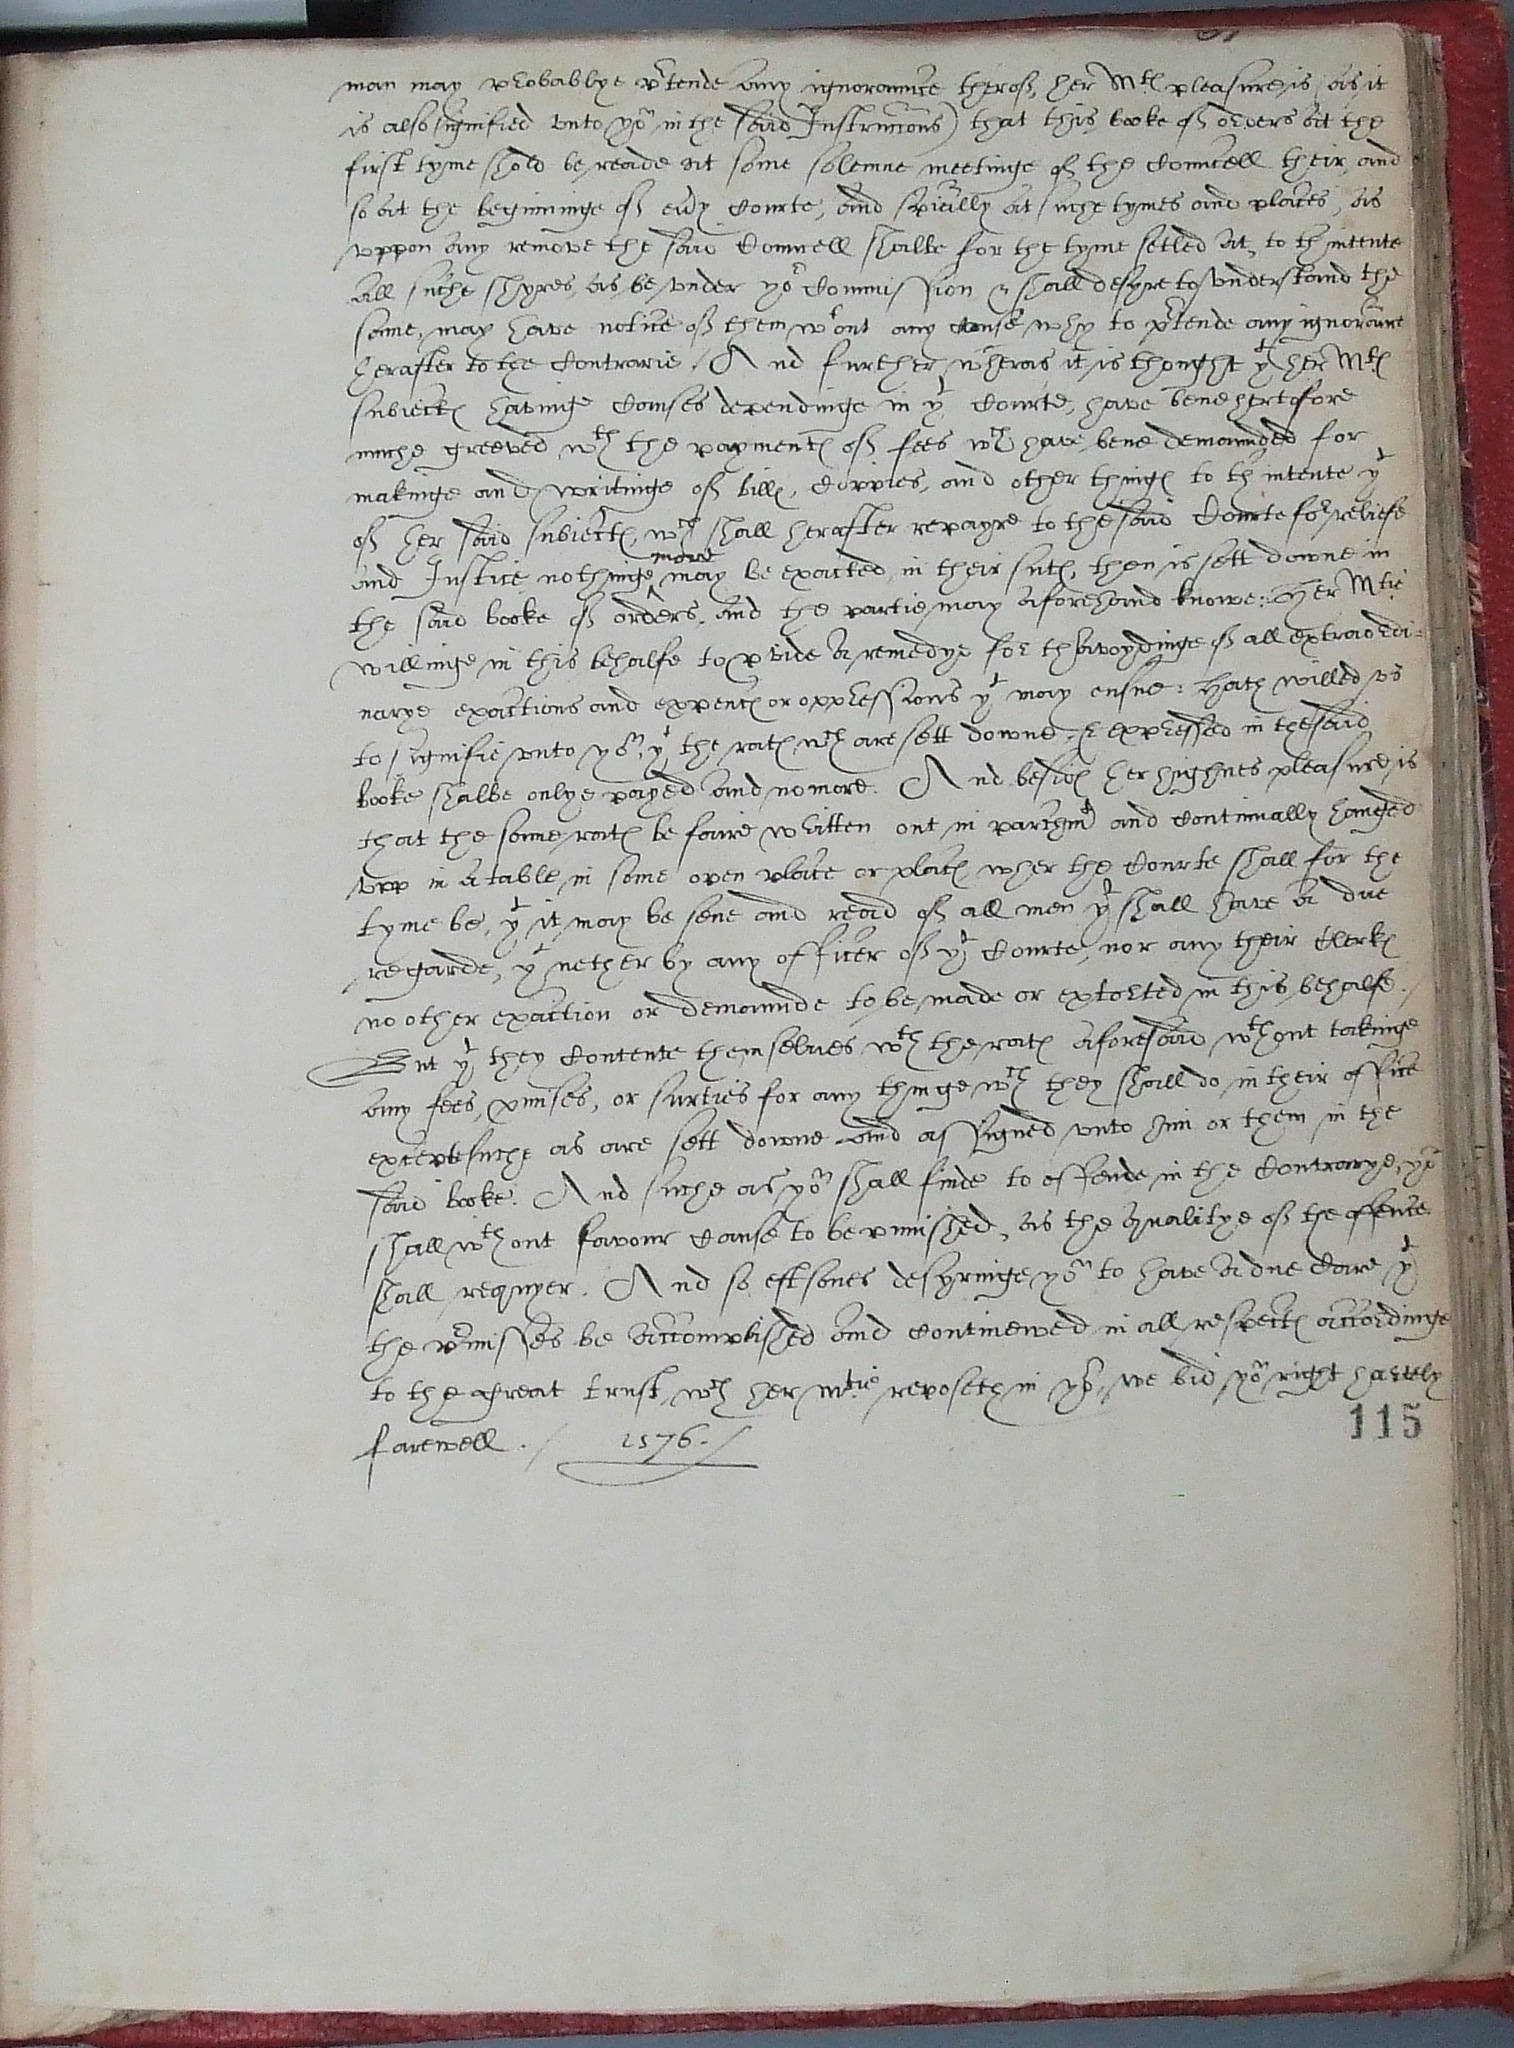 man may probablye p'tende any ignoraunce therof, her Mtes pleasure is (as it
is also signified vnto yor in the said Instruccons) that this booke of orders at the
first tyme shold be reade at some solemne meetinge of the Councell their, and
so at the beginninge of eu'y Courte, and sp'ially at suche tymes and places, as
vppon any remove the said Councell shalbe for the tyme setled at, to th intente
all suche shyres, as be vnder yor Commission & shall desyre to vnderstand the
same, may have notice of them wtout any cause why to p'tende any ignoraunce
herafter to the Contrarie / And further wheras it is thought yt her Mtes
subiectes havinge Causes dependinge in yt Courte, have bene hertofore
muche greeved wth the paymentes of fees wch have bene demaunded for
makinge and writinge of billes, Coppies, and other thinges to th intente yt
of her said subiectes, wch shall herafter repayre to the said Courte for reliefe
and Justice nothinge more may be exacted, in their sutes, then is sett downe in
the said booke of orders, and the partie may aforehand knowe: Her Mtie
willinge in this behalfe to p'vide a remedye for th avoydinge of all extraordi-
narye exactions and expences or oppressions yt may ensue: Hath willed vs
to signifie vnto you, yt the rates wch are sett downe & expressed in the said
booke shalbe onlye payed and no more. And besides her highnes pleasure is
that the same rates be faire written out in parchmt and Continually hanged
vpp in a table in some open place or places wher the Courte shall for the
tyme be, yt it may be sene and read of all men yt shall have a due
regarde, yt nether by any officer of yt Courte, nor any their Clerkes
no other exaction or demaunde to be made or extorted in this behalfe. /
But yt they Contente themselves wth the rates aforesaid wthout takinge
any fees, p'mises, or surties for any thinge wch they shall do in their office
excepte suche as are sett downe and assigned vnto him or them in the
said booke. And suche as you shall finde to offende in the Contrarye, you
shall wthout favour Cause to be punished, as the qualitye of the offence
shall requyer. And so eftsones desyringe you to have a due Care yt
the p'misses be accomplished and Continewed in all respectes accordinge
to the great trust wch her Mtie reposeth in you, we bid you right hartely
farewell. / 1576. /
115